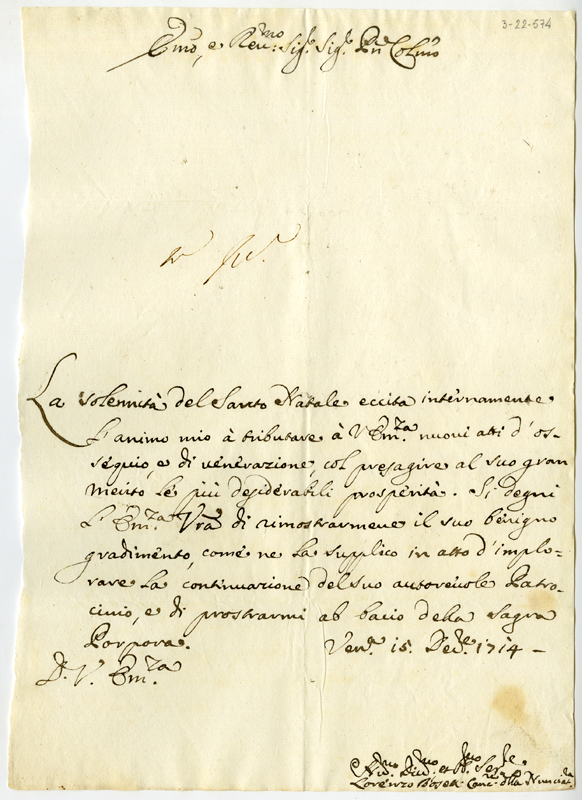 3-22-574
Emo, e Revmo: Sigr. Sigr. Pn Colmo
La solennità del Santo Natale eccita internamente
l'animo mio à tributare à V Em.za nuovi atti d'os=
sequio, e di venerazione, col presagire al suo gran
merito le più desiderabili prosperità. Si degni
l'Em.za Vra di rimostrarmene il suo benigno
gradimento, come ne la supplico in atto d'implo=
rare la continuazione del suo autorevole Patro-
cinio, e di prostrarmi al bacio della Sagra
Porpora. Ven.a 15. Dec.re 1714 -
D. V. Em.za
Lorenzo della Nunciat.ra